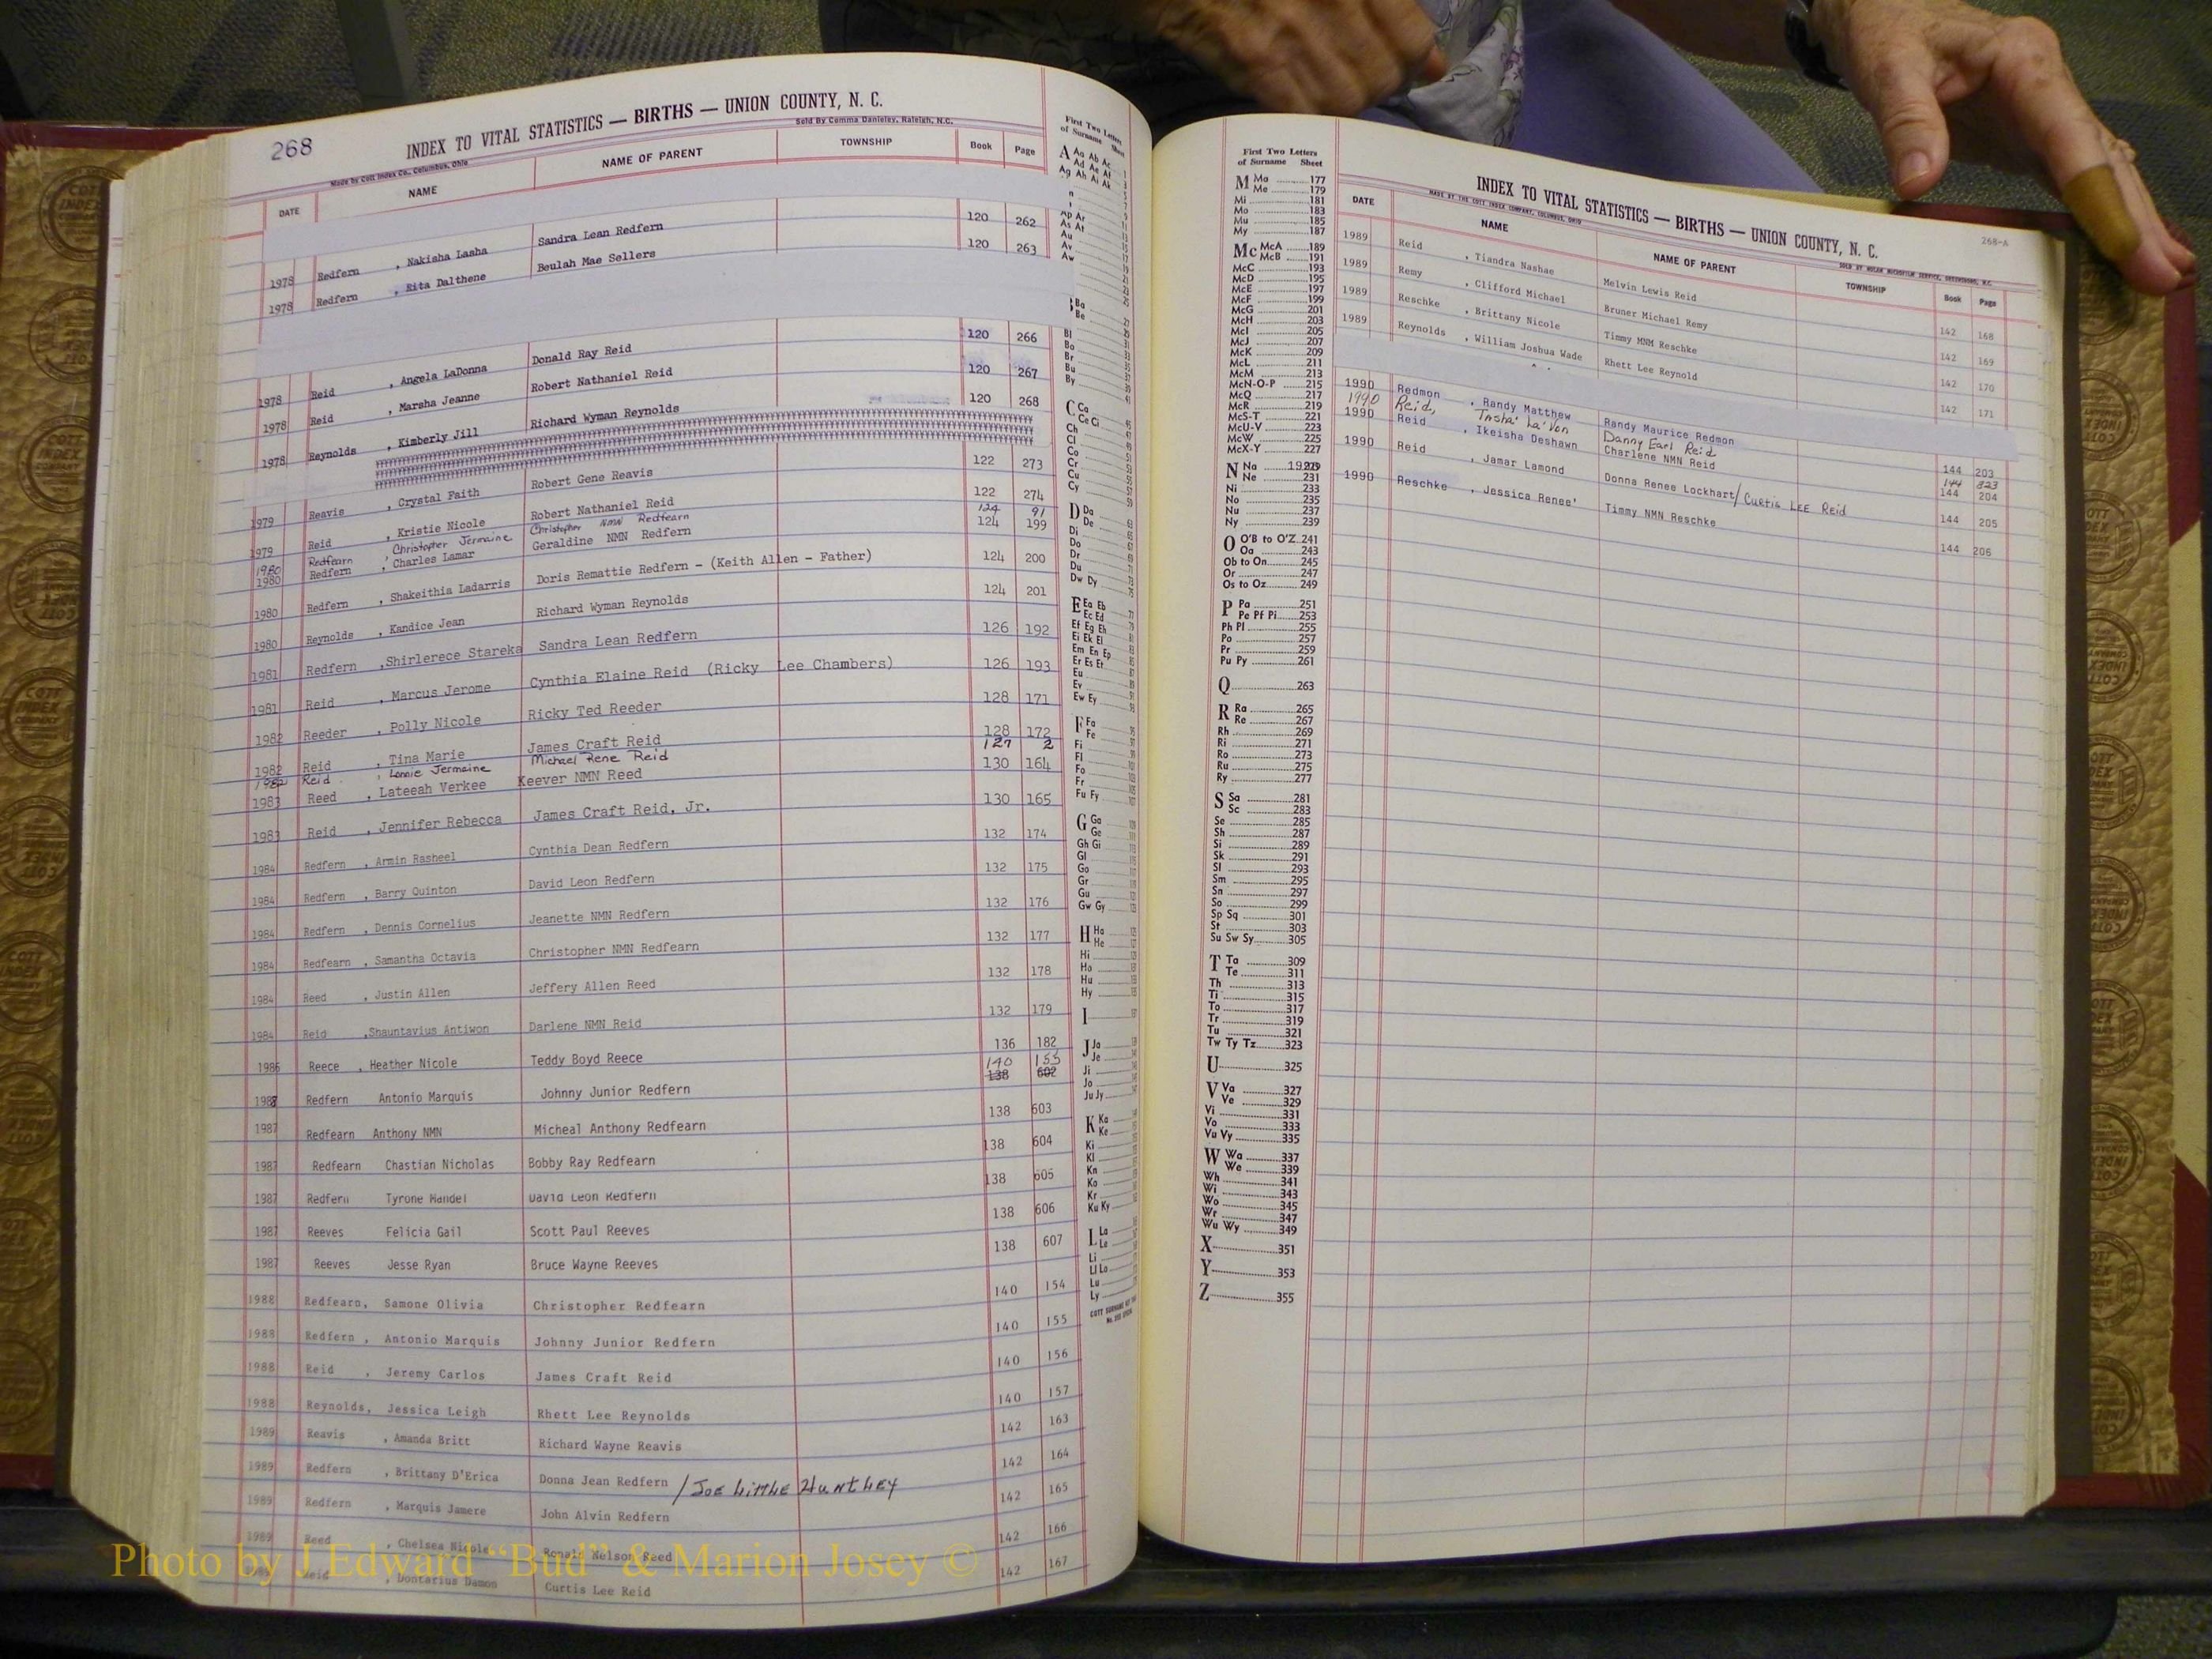 268
INDEX TO VITAL STATISTICS — BIRTHS — UNION COUNTY, N. C.
Made by Cott Index Co., Columbus, Ohio
Sold By Comma Danieley, Raleigh, N.C.
DATE NAME NAME OF PARENT TOWNSHIP Book Page
1978 Redfern , Nakisha Lasha Sandra Lean Redfern 120 262
1978 Redfern , Rita Dalthene Beulah Mae Sellers 120 263
1978 Reid , Angela LaDonna Donald Ray Reid 120 266
1978 Reid , Marsha Jeanne Robert Nathaniel Reid 120 267
1978 Reynolds , Kimberly Jill Richard Wyman Reynolds 120 268
1979 Reavis , Crystal Faith Robert Gene Reavis 122 273
1979 Reid , Kristie Nicole Robert Nathaniel Reid 122 274
1980 Redfearn , Christopher Jermaine Christopher NMN Redfearn 124 91
1980 Redfern , Charles Lamar Geraldine NMN Redfern 124 199
1980 Redfern , Shakeithia Ladarris Doris Remattie Redfern - (Keith Allen - Father) 124 200
1980 Reynolds , Kandice Jean Richard Wyman Reynolds 124 201
1981 Redfern ,Shirlerece Stareka Sandra Lean Redfern 126 192
1981 Reid , Marcus Jerome Cynthia Elaine Reid (Ricky Lee Chambers) 126 193
1982 Reeder , Polly Nicole Ricky Ted Reeder 128 171
1982 Reid , Tina Marie James Craft Reid 128 172
1982 Reid , Lonnie Jermaine Michael Rene Reid 127 2
1983 Reed , Lateeah Verkee Keever NMN Reed 130 164
1983 Reid , Jennifer Rebecca James Craft Reid, Jr. 130 165
1984 Redfern , Armin Rasheel Cynthia Dean Redfern 132 174
1984 Redfern , Barry Quinton David Leon Redfern 132 175
1984 Redfern , Dennis Cornelius Jeanette NMN Redfern 132 176
1984 Redfearn , Samantha Octavia Christopher NMN Redfearn 132 177
1984 Reed , Justin Allen Jeffery Allen Reed 132 178
1984 Reid ,Shauntavius Antiwon Darlene NMN Reid 132 179
1986 Reece , Heather Nicole Teddy Boyd Reece 136 182
140 155
1988 Redfern Antonio Marquis Johnny Junior Redfern 138 602
1987 Redfearn Anthony NMN Micheal Anthony Redfearn 138 603
1987 Redfearn Chastian Nicholas Bobby Ray Redfearn 138 604
1987 Redfern Tyrone Mandel David Leon Redfern 138 605
1987 Reeves Felicia Gail Scott Paul Reeves 138 606
1987 Reeves Jesse Ryan Bruce Wayne Reeves 138 607
1988 Redfearn, Samone Olivia Christopher Redfearn 140 154
1988 Redfern , Antonio Marquis Johnny Junior Redfern 140 155
1988 Reid , Jeremy Carlos James Craft Reid 140 156
1988 Reynolds, Jessica Leigh Rhett Lee Reynolds 140 157
1989 Reavis , Amanda Britt Richard Wayne Reavis 142 163
1989 Redfern , Brittany D'Erica Donna Jean Redfern / Joe Little Huntley 142 164
1989 Redfern , Marquis Jamere John Alvin Redfern 142 165
1989 Reed , Chelsea Nicole Ronald Nelson Reed 142 166
1989 Reid , Dontarius Damon Curtis Lee Reid 142 167
First Two Letters of Surname Sheet
A Aa Ab Ac
Ad Ae Af
Ag Ah Ai Ak
Ap Ar
As At
Au
Av
Aw
Ba
Be
Bl
Bo
Br
Bu
By
C Ca
Ce Ci
Ch
Cl
Co
Cr
Cu
Cy
D Da
De
Di
Do
Dr
Du
Dw Dy
E Ea Eb
Ec Ed
Ef Eg Eh
Ei Ek El
Em En Ep
Er Es Et
Eu
Ev
Ew Ey
F Fa
Fe
Fi
Fl
Fo
Fr
Fu Fy
G Ga
Ge
Gh Gi
Gl
Go
Gr
Gu
Gw Gy
H Ha
He
Hi
Ho
Hu
Hy
I
J Ja
Je
Ji
Jo
Ju Jy
K Ka
Ke
Ki
Kl
Kn
Ko
Kr
Ku Ky
L La
Le
Li
Ll Lo
Lu
Ly
First Two Letters
of Surname Sheet
M Ma 177
Me 179
Mi 181
Mo 183
Mu 185
My 187
Mc McA 189
McB 191
McC 193
McD 195
McE 197
McF 199
McG 201
McH 203
McI 205
McJ 207
McK 209
McL 211
McM 213
McN-O-P 215
McQ 217
McR 219
McS-T 221
McU-V 223
McW 225
McX-Y 227
N Na
Ne 231
Ni 233
No 235
Nu 237
Ny 239
O O'B to O'Z 241
Oa 243
Ob to On 245
Or 247
Os to Oz 249
P Pa 251
Pe Pf Pi 253
Ph Pl 255
Po 257
Pr 259
Pu Py 261
Q 263
R Ra 265
Re 267
Rh 269
Ri 271
Ro 273
Ru 275
Ry 277
S Sa 281
Sc 283
Se 285
Sh 287
Si 289
Sk 291
Sl 293
Sm 295
Sn 297
So 299
Sp Sq 301
St 303
Su Sw Sy 305
T Ta 309
Te 311
Th 313
Ti 315
To 317
Tr 319
Tu 321
Tw Ty Tz 323
U 325
V Va 327
Ve 329
Vi 331
Vo 333
Vu Vy 335
W Wa 337
We 339
Wh 341
Wi 343
Wo 345
Wr 347
Wu Wy 349
X 351
Y 353
Z 355
268-A
INDEX TO VITAL STATISTICS — BIRTHS — UNION COUNTY, N. C.
MADE BY THE COTT INDEX COMPANY, COLUMBUS, OHIO
DATE NAME NAME OF PARENT TOWNSHIP Book Page
1989 Reid , Tiandra Nashae Melvin Lewis Reid 142 168
1989 Remy , Clifford Michael Bruner Michael Remy 142 169
1989 Reschke , Brittany Nicole Timmy MNM Reschke 142 170
1989 Reynolds , William Joshua Wade Rhett Lee Reynold 142 171
1990 Redmon , Randy Matthew Randy Maurice Redmon 144 203
1990 Reid, Tasha' La'Von Danny Earl Reid 144 323
1990 Reid , Ikeisha Deshawn Charlene NMN Reid 144 204
1990 Reid , Jamar Lamond Donna Renee Lockhart / Curtis Lee Reid 144 205
1990 Reschke , Jessica Renee' Timmy NMN Reschke 144 206
Photo by J Edward “Bud” & Marion Josey ©